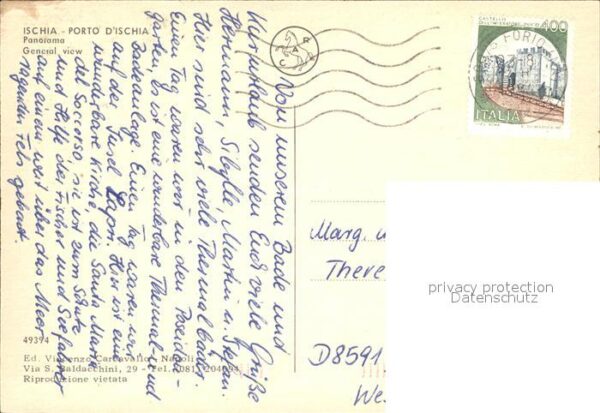 ISCHIA - PORTO D'ISCHIA
Panorama
General view
Von unserem Bade und
Kururlaub senden Euch viele Grüße
Hermann, Sibylle, Martin u. Stefan.
Hier sind sehr viele Thermalbäder.
Einen Tag waren wir in den Poseidon-
gärten, es ist eine wunderbare Thermal und
Badeanlage. Einen Tag waren wir
auf der Insel Capri. Hier ist eine
wunderbare Kirche, die Santa Maria
del Soccorso, sie ist zum Schutz
und Hilfe der Fischer und Seefahrer
auf einen weit über das Meer
ragenden Fels gebaut.
49394
Ed. Vincenzo Carcavallo - Napoli
Via S. Baldacchini, 29 - Tel. (081) 204694
Riproduzione vietata
CASTELLO
400
ITALIA
FORIO
Marg
There
D8591
We
privacy protection
Datenschutz